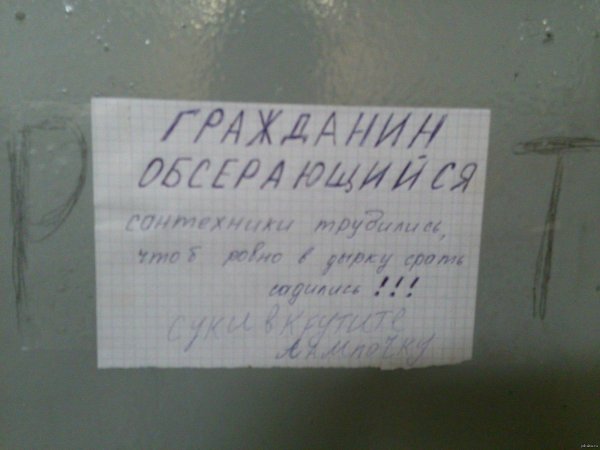 ГРАЖДАНИН
ОБСЕРАЮЩИЙСЯ
сантехники трудились,
чтоб ровно в дырку срать
садились !!!
суки вкрутите
лампочку
Р Т